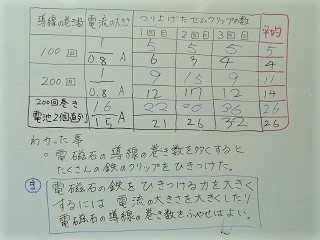 導線の巻き数 電流の大きさ つり上げたゼムクリップの数 平均
1回目 2回目 3回目
100回 1 A 5 5 5 5
0.8 6 3 4 4
200回 1 A 9 15 9 11
0.8 12 17 12 14
200回巻き 1.6 A 22 20 36 26
電池2個直列 1.5 21 26 32 26
わかった事
○電磁石の導線の巻き数を多くすると
たくさんの鉄のクリップをひきつけた。
ま 電磁石の鉄をひきつける力を大きく
するには 電流の大きさを大きくしたり
電磁石の導線の巻き数をふやせばよい。